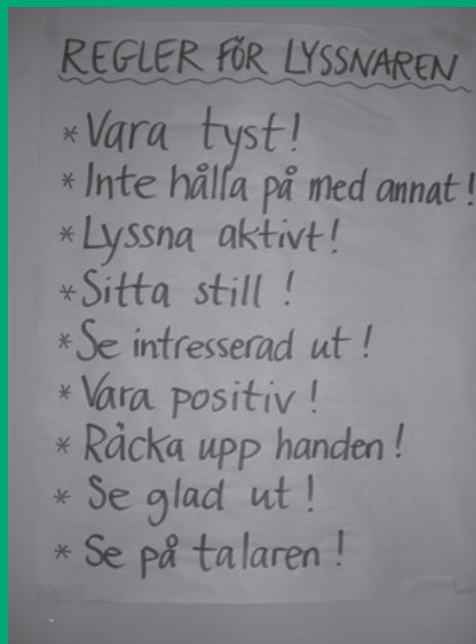 REGLER FÖR LYSSNAREN
* Vara tyst!
* Inte hålla på med annat!
* Lyssna aktivt!
* Sitta still!
* Se intresserad ut!
* Vara positiv!
* Räcka upp handen!
* Se glad ut!
* Se på talaren!